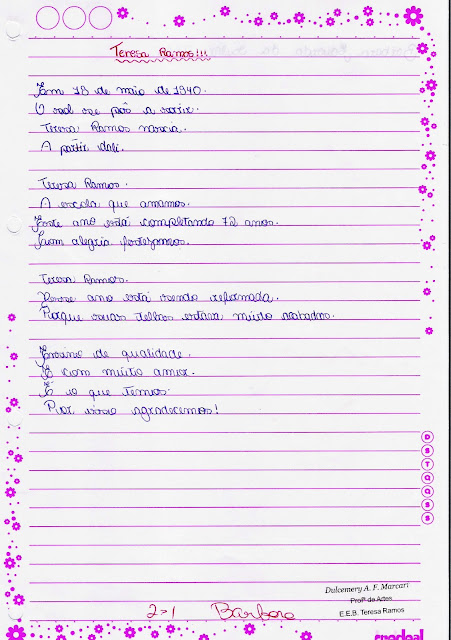 Teresa Ramos!!!
Em 18 de maio de 1940.
O sol se pôs a sorrir.
Teresa Ramos nascia.
A partir dali.
Teresa Ramos.
A escola que amamos.
Este ano está completando 72 anos.
Com alegria festejamos.
Teresa Ramos.
Desse ano está sendo reformada.
Porque suas telhas estava muito acabadas.
Ensino de qualidade.
E com muito amor.
É o que temos.
Por isso agradecemos!
D
S
T
Q
Q
S
S
Dulcemery A. F. Marcari
Profª de Artes
E.E.B. Teresa Ramos
2>1 Barbara
credeal